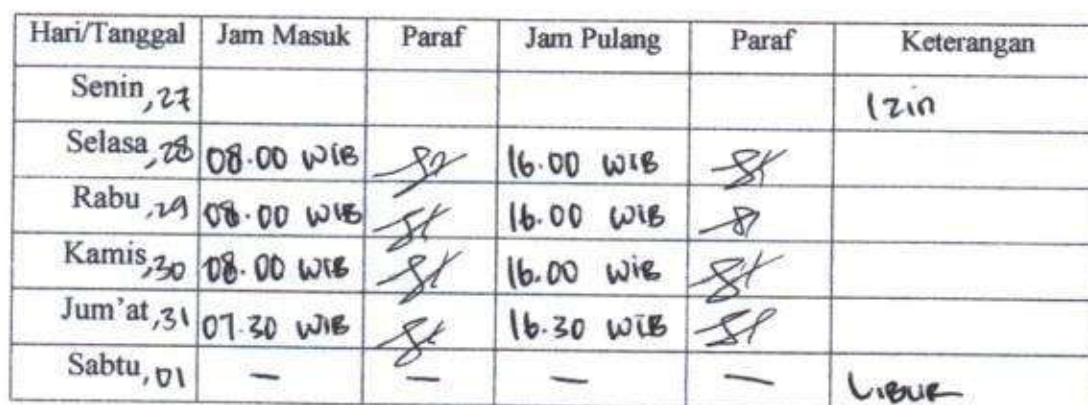 Hari/Tanggal Jam Masuk Paraf Jam Pulang Paraf Keterangan
Senin, 27 Izin
Selasa, 28 08.00 WIB 16.00 WIB
Rabu, 29 08.00 WIB 16.00 WIB
Kamis, 30 08.00 WIB 16.00 WIB
Jum'at, 31 07.30 WIB 16.30 WIB
Sabtu, 01 — — — — LIBUR